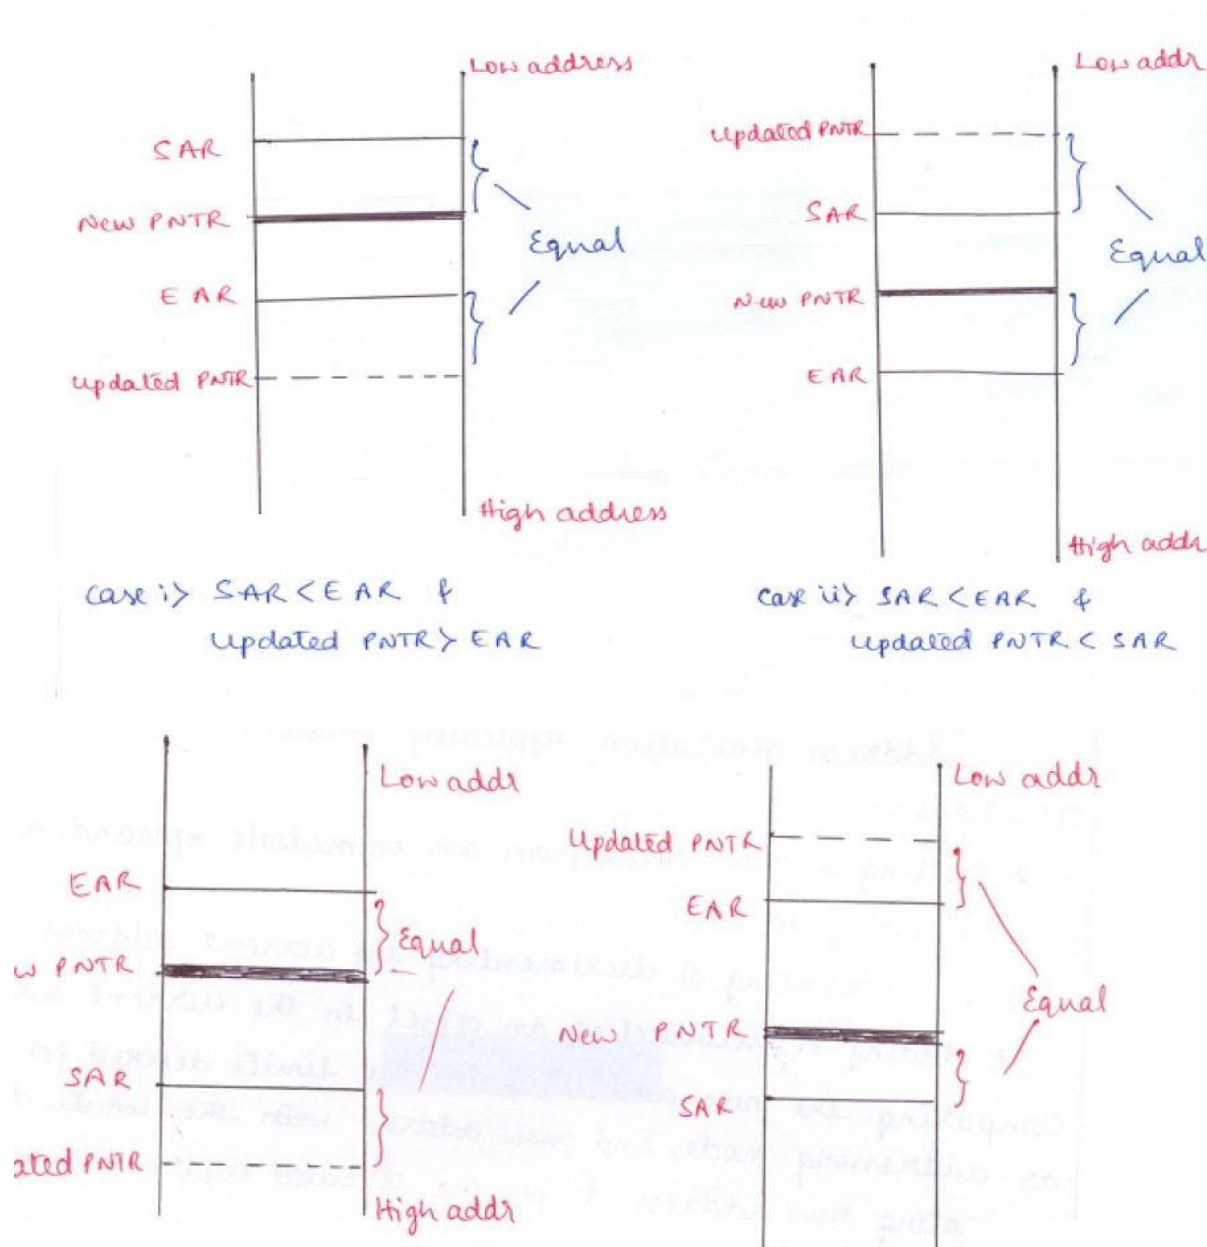 Low address
SAR
New PNTR
Equal
EAR
Updated PNTR
High address
Case i> SAR < EAR &
Updated PNTR > EAR
Low addr
Updated PNTR
SAR
Equal
New PNTR
EAR
High addr
Case ii> SAR < EAR &
Updated PNTR < SAR
Low addr
EAR
Equal
w PNTR
SAR
ated PNTR
High addr
Low addr
Updated PNTR
EAR
Equal
New PNTR
SAR